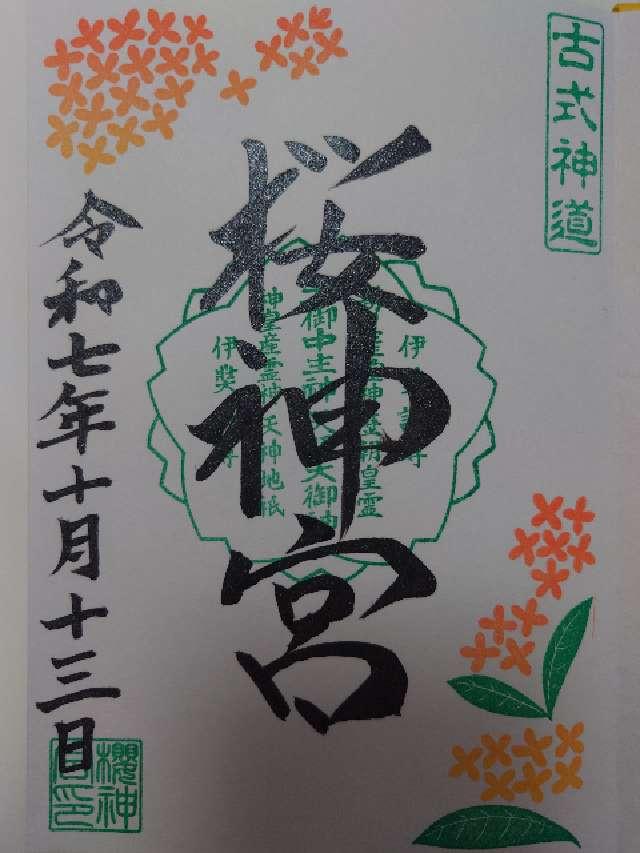 古式神道
桜神宮
伊
神産霊神 
御中主神
神皇産霊神 天神地祇
伊奘
令和七年十月十三日
櫻神
宮印